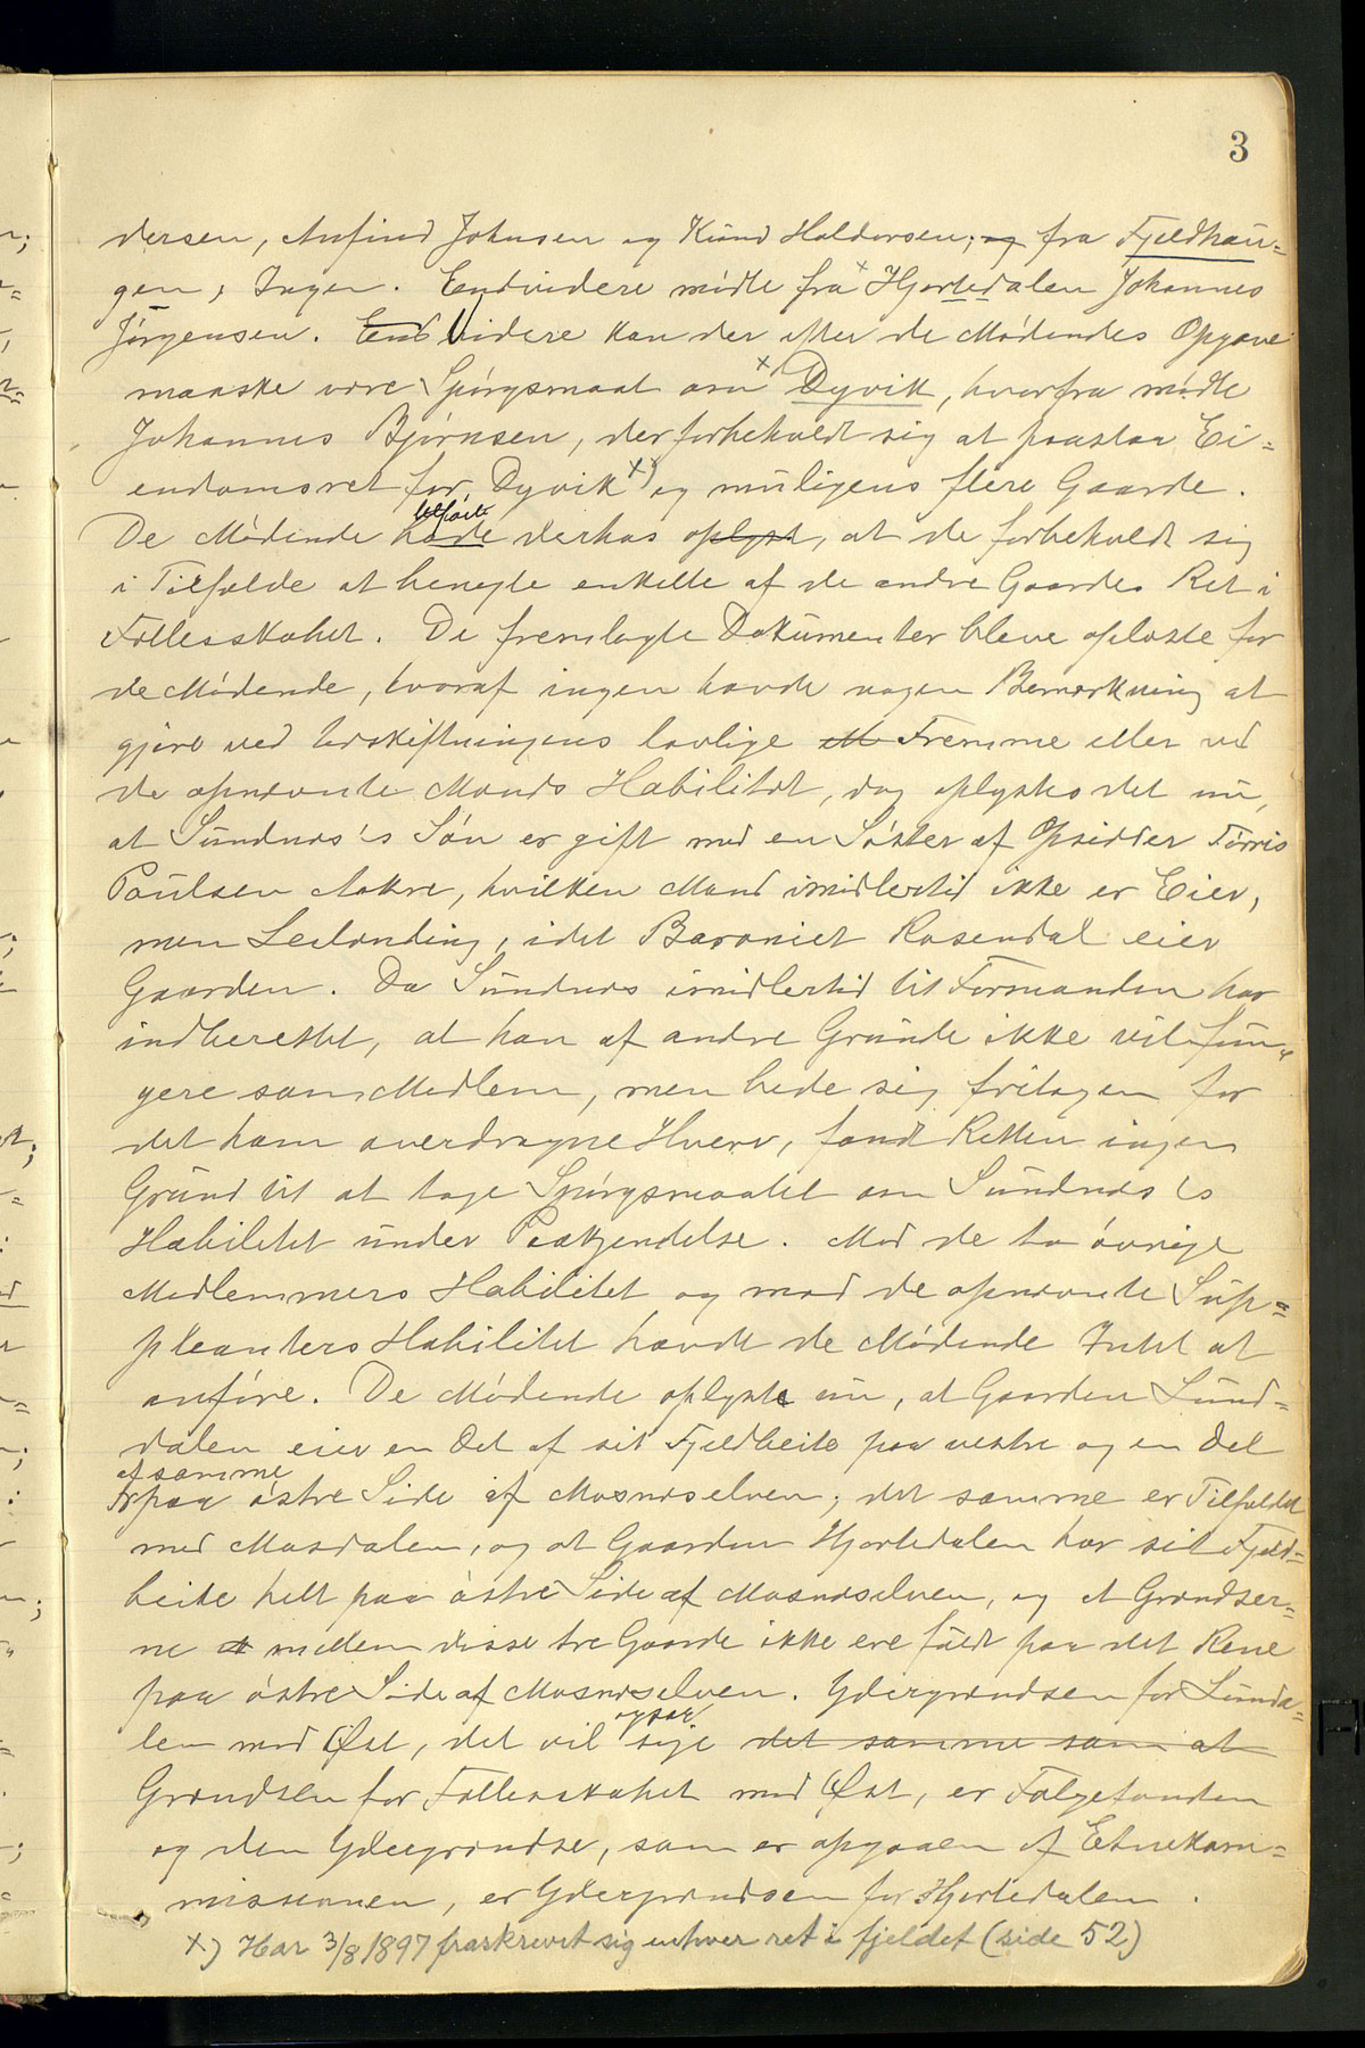 3
dersen, Anfind Johnsen og Knud Haldorsen; og fra Fjeldhau=
gen, Ingen. Endvidere mødte fra x Hjortedalen Johannes
Jørgensen. End Videre kan der efter de Mødendes Opgave
maaske være Spørgsmaal om x Dyvik, hvorfra mødte
Johannes Bjørnsen, der forbeholdt sig at paastaa Ei=
endomsret for Dyvik x) og muligens flere Gaarde.
De Mødende havde derhos oplyst, at de forbeholdt sig
i Tilfælde at benegte enkelte af de andre Gaardes Ret i
Fællesskabet. De fremlagte Dokumenter bleve oplæste for
de Mødende, hvoraf ingen havde nogen Bemærkning at
gjøre ved Udskiftningens lovlige Fremme eller ved
de opnævnte Mænds Habilitet, dog oplystes det nu,
at Sundnæs's Søn er gift med en Søster af Opsidder Tørris
Paulsen Aakre, hvilken Mand imidlertid ikke er Eier,
men Leilænding, idet Baroniet Rosendal eier
Gaarden. Da Sundnæs imidlertid til Formanden har
indberettet, at han af andre Grunde ikke vil fun=
gere som Medlem, men bede sig fritagen for
det ham overdragne Hverv, fandt Retten ingen
Grund til at tage Spørgsmaalet om Sundnæs's
Habilitet under Paakjendelse. Mod de to øvrige
Medlemmers Habilitet og mod de opnævnte Sup=
pleanters Habilitet havde de Mødende Intet at
anføre. De Mødende oplyste nu, at Gaarden Lund=
dalen eier en Del af sit Fjeldbeite paa vestre og en Del
af samme
paa østre Side af Mosnæselven; det samme er Tilfældet
med Mosdalen, og at Gaarden Hjortedalen har sit Fjeld=
beite helt paa østre Side af Mosnæselven, og at Grændser=
ne mellem disse tre Gaarde ikke ere fuldt paa det Rene
paa østre Side af Mosnæselven. Ydergrændsen for Lunda=
len mod Øst, det vil ogsaa sige det samme som at
Grændsen for Fællesskabet mod Øst, er Folgefonden
og den Ydergrændse, som er opgaaen af Etnekom=
missionen, er Ydergrændsen for Hjortedalen.
x) Har 3/8 1897 fraskrevet sig enhver ret i fjeldet (side 52)